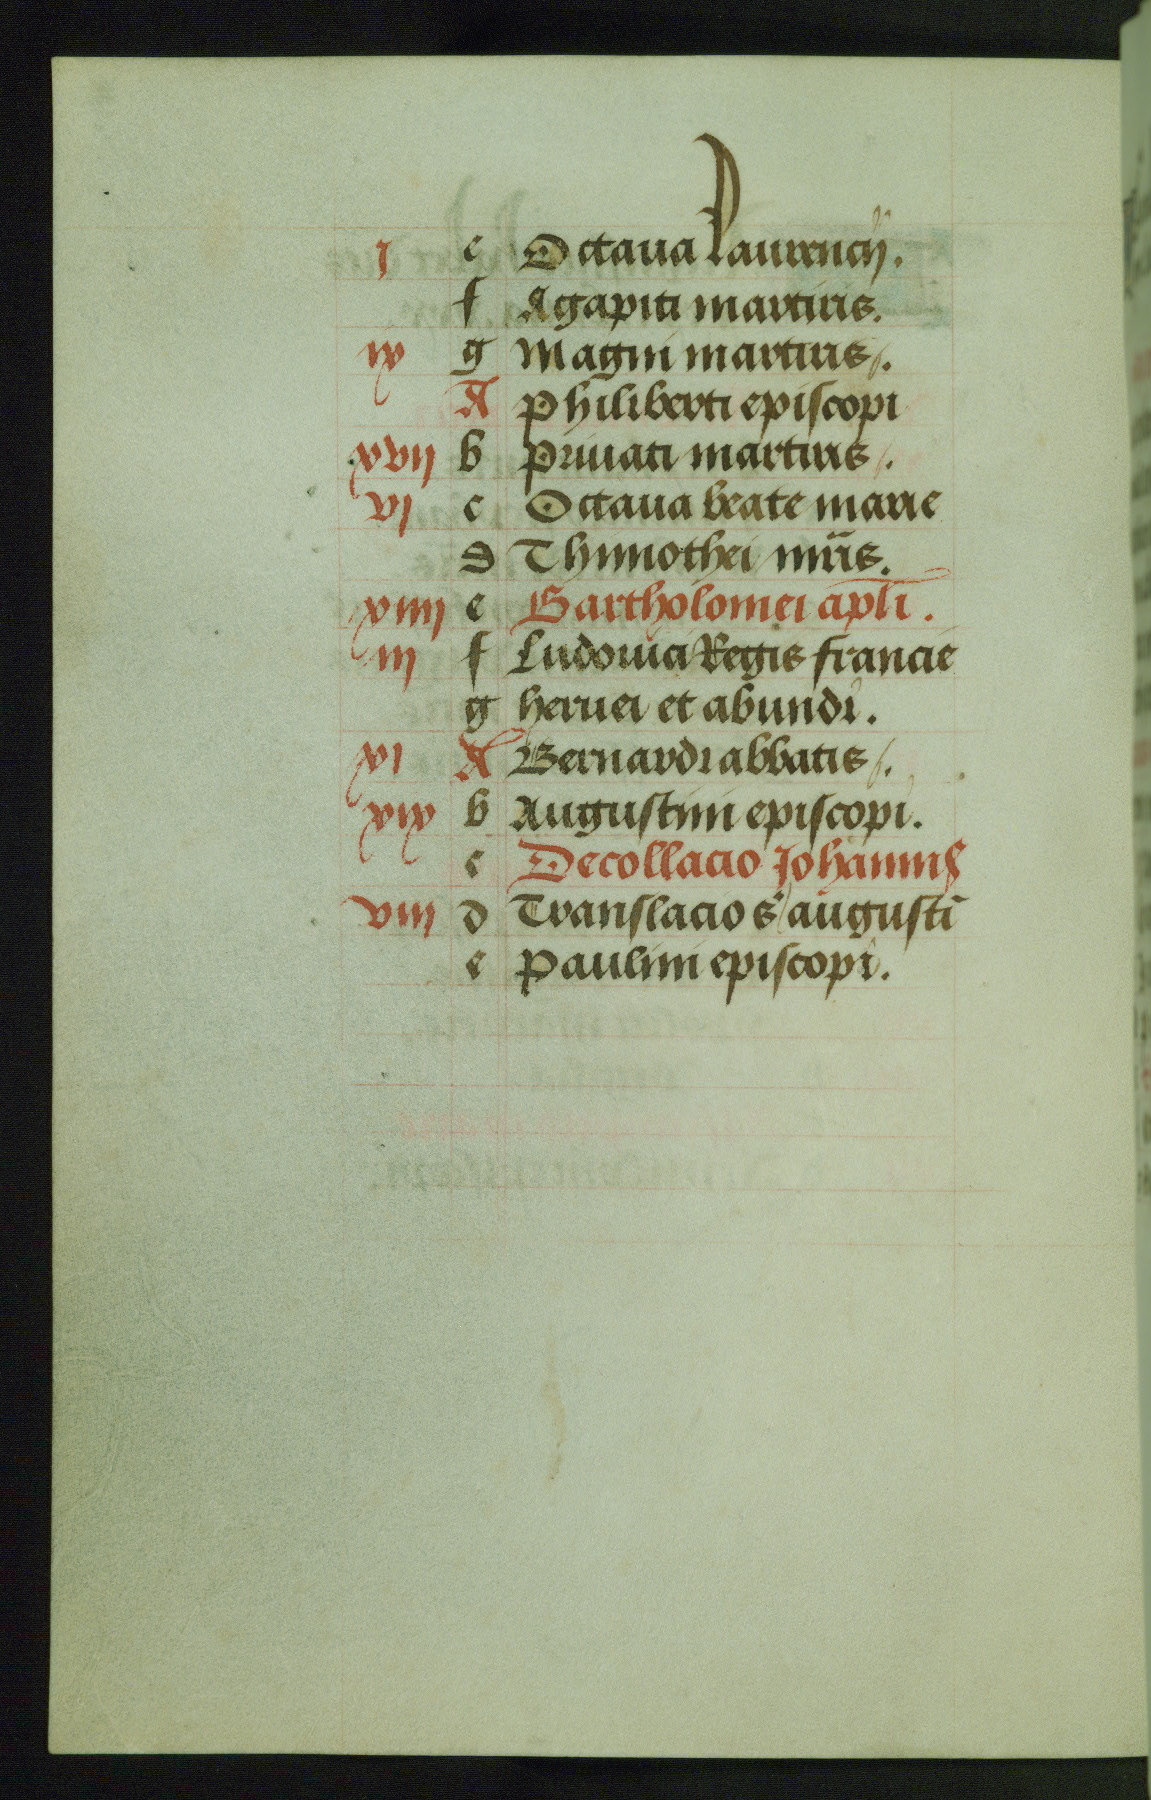 j e Octaua laurencij.
f Agapiti martiris.
ix g Magni martiris.
A Philiberti episcopi
xvij b Priuati martiris.
vj c Octaua beate marie
d Thimothei mr̄is.
xiiij e Bartholomei apl̄i.
iij f Ludouici Regis francie
g heruei et abundi.
xj A Bernardi abbatis.
xix b Augustini episcopi.
c Decollacio Johannis
viij d Translacio s augustī
e Paulini episcopi.